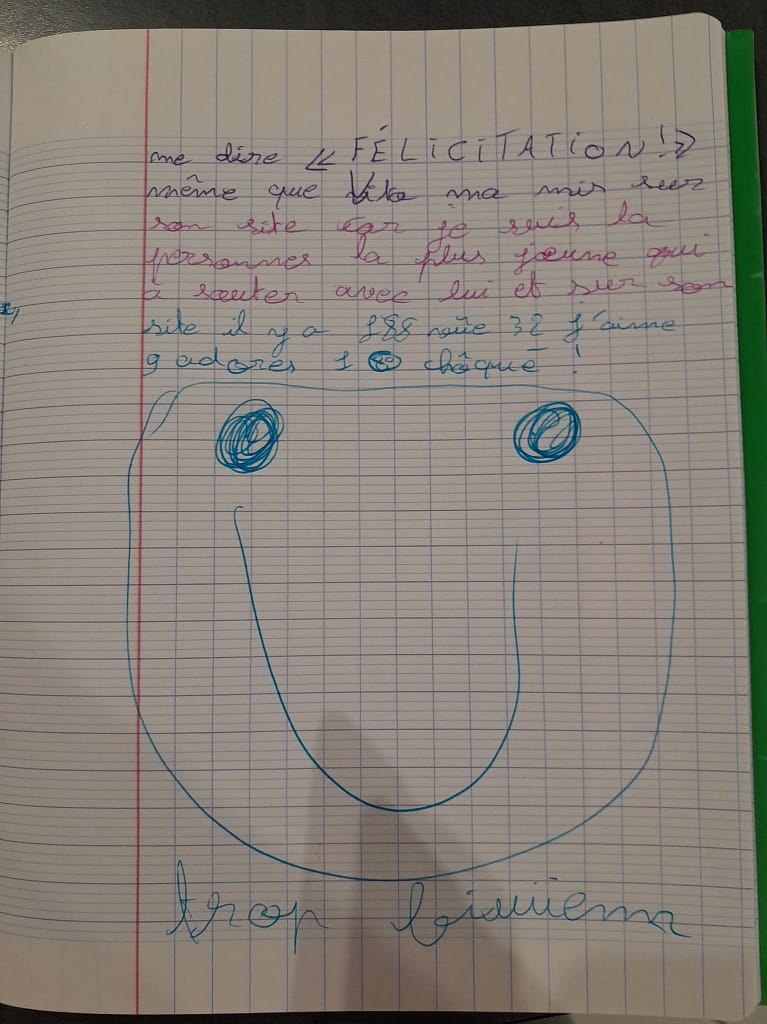 me dire « FÉLICITATION ! »
même que Vito ma mis sur
son site car je suis la
personnes la plus jeune qui
à sauter avec lui et sur son
site il y a 188 32 j'aime
9 adores 1 chôqué !
trop